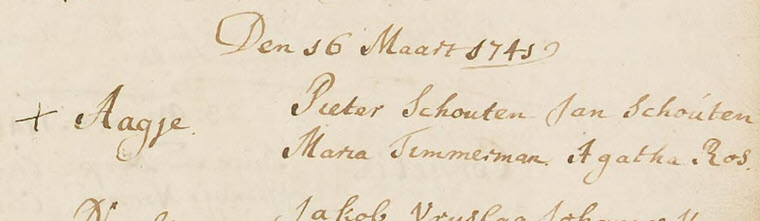 Den 16 Maart 1741
+ Aagje. Pieter Schouten Jan Schouten
Maria Timmerman. Agatha Ros.
Jakob